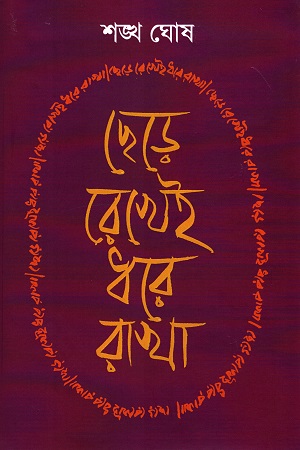 শঙ্খ ঘোষ
ছেড়ে
রেখেই
ধরে
রাখা